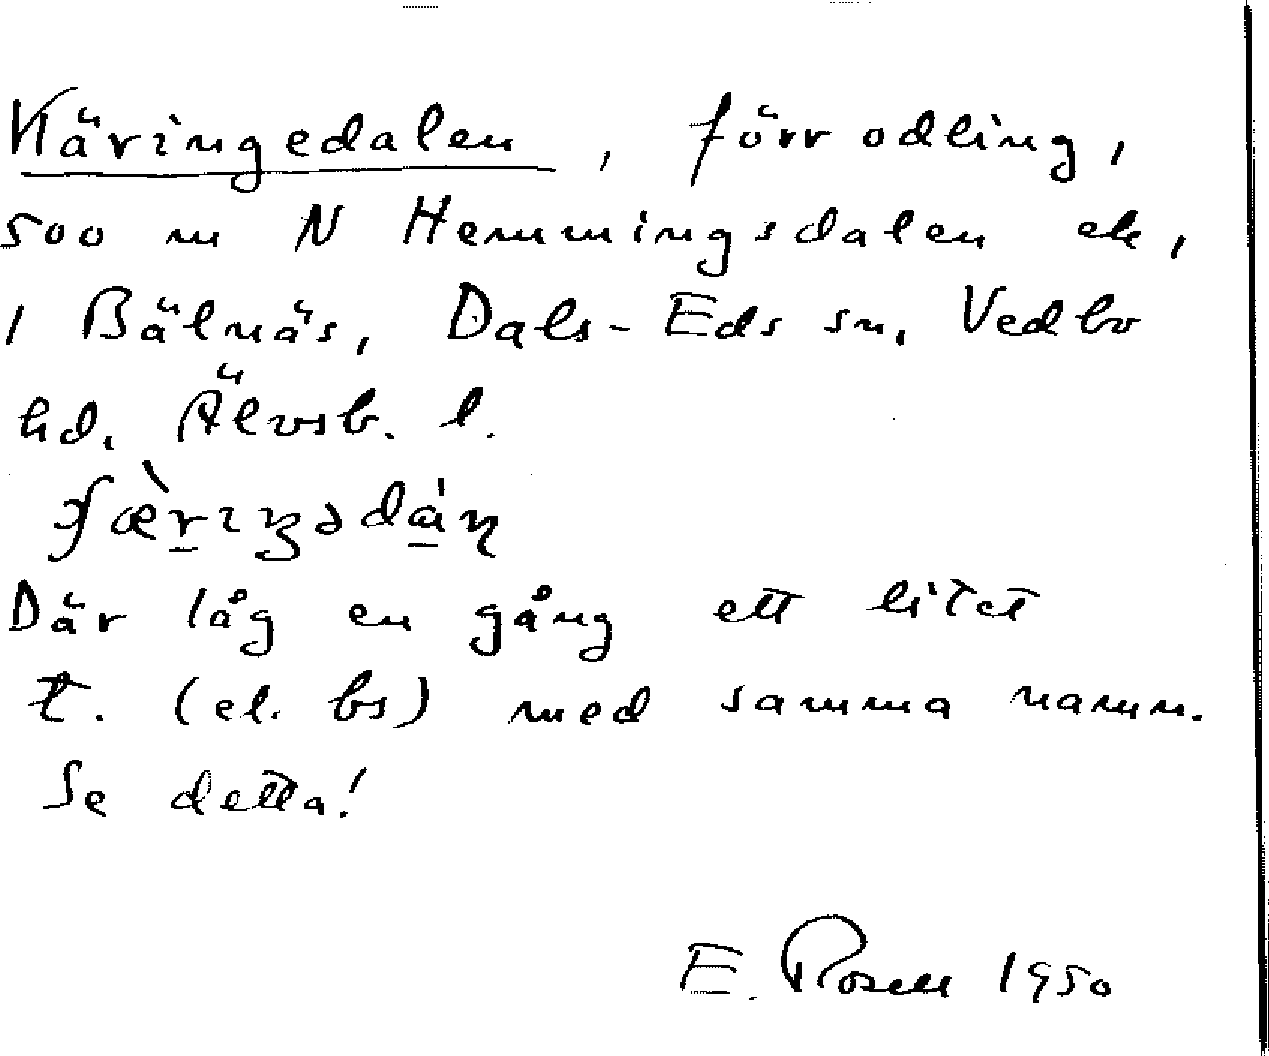 Käringedalen, förr odling,
500 m N Hemmingsdalen ek,
1 Bälnäs, Dals-Eds sn, Vedbo
hd, Älvsb. l.
Där låg en gång ett litet
t. (el. bs) med samma namn.
Se detta!
E. Rosell 1950